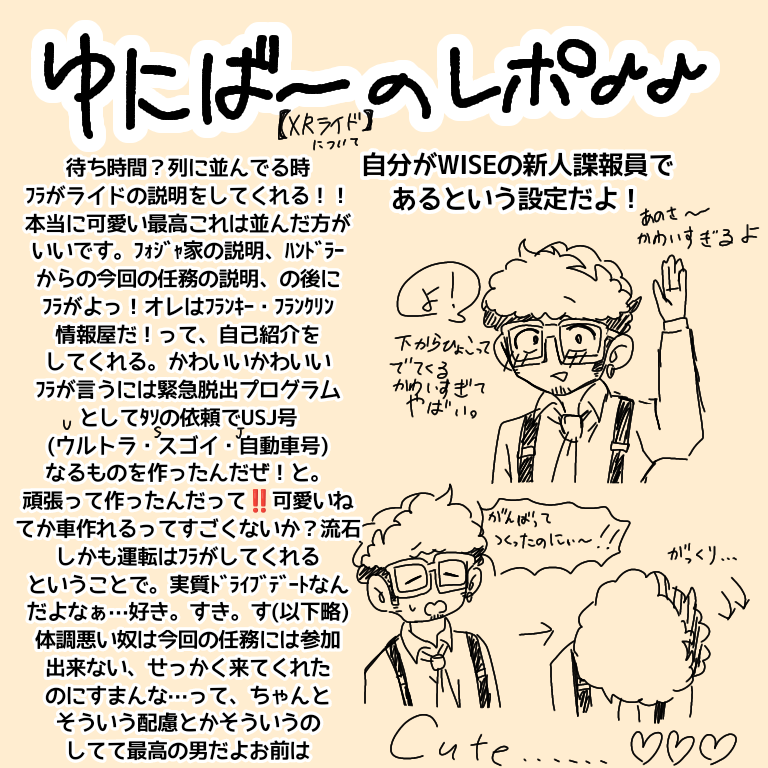 ゆにば〜のレポ♪♪
【XRライド】
について
待ち時間？列に並んでる時
ﾌﾗがライドの説明をしてくれる！！
本当に可愛い最高これは並んだ方が
いいです。ﾌｫｼﾞｬ家の説明、ﾊﾝﾄﾞﾗｰ
からの今回の任務の説明、の後に
ﾌﾗがよっ！オレはﾌﾗﾝｷｰ・ﾌﾗﾝｸﾘﾝ
情報屋だ！って、自己紹介を
してくれる。かわいいかわいい
ﾌﾗが言うには緊急脱出プログラム
としてﾀｿの依頼でUSJ号
U S J
(ウルトラ・スゴイ・自動車号)
なるものを作ったんだぜ！と。
頑張って作ったんだって‼️可愛いね
てか車作れるってすごくないか？流石
しかも運転はﾌﾗがしてくれる
ということで。実質ﾄﾞﾗｲﾌﾞﾃﾞｰﾄなん
だよなぁ…好き。すき。す(以下略)
体調悪い奴は今回の任務には参加
出来ない、せっかく来てくれた
のにすまんな…って、ちゃんと
そういう配慮とかそういうの
してて最高の男だよお前は
自分がWISEの新人諜報員で
あるという設定だよ！
あのさ〜
かわいすぎるよ
よ！っ
下からひょこって
でてくる
かわいすぎて
やばい。
がんばって
つくったのにぃ〜!!
がっくり…
Cute......♡♡♡